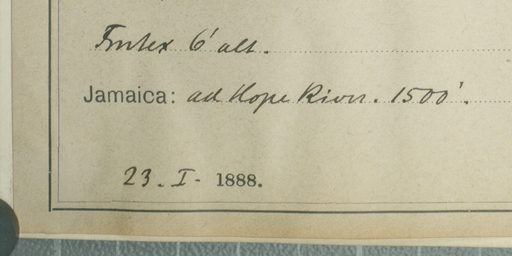 Frutex 6' alt.
Jamaica: ad Hope River. 1500'.
23. I - 1888.